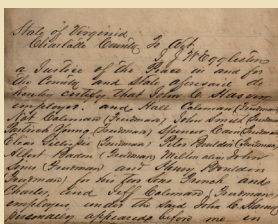 State of Virginia
Charlotte County To Wit,
I J. W. Eggleston
a Justice of the Peace in and for
the County and State aforesaid do
hereby certify that John C.
employer and Hall Coleman (Freedman)
Nat Coleman (Freedman) John Smith (Freedman)
Young (Freedman) Spencer (Freedman)
(Freedman) Peter Bouldin (Freedman)
Albert (Freedman) John
Sims (Freedman) and Henry Bouldin
(Freedman) for his sons James and
Charles, and Jeff Coleman (Freedman)
employees under the said John C.
personally appeared before me in